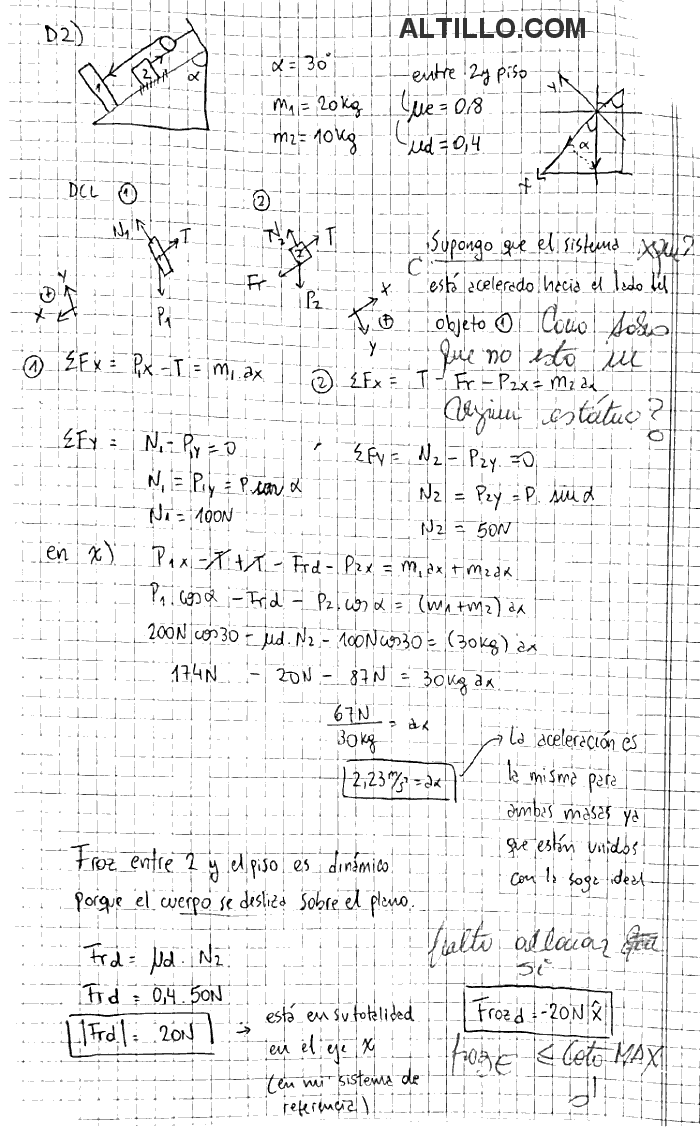 ALTILLO.COM
D2)
1
2
α
α = 30°
m₁ = 20kg
m₂ = 10kg
entre 2 y piso
μe = 0,8
μd = 0,4
y
α
x
DCL ①
②
N₁
T
P₁
N₂
T
2
Fr
P₂
Y
X
⊕
X
Y
⊕
Supongo que el sistema
xque?
está acelerado hacia el lado del
objeto ① Como
que no esto
estático?
① ΣFx = P₁x - T = m₁.ax
② ΣFx = T - Fr - P₂x = m₂ax
ΣFy = N₁ - P₁y = 0
N₁ = P₁y = P. sen α
N₁ = 100N
ΣFy = N₂ - P₂y = 0
N₂ = P₂y = P. sin α
N₂ = 50N
en x) P₁x - T + T - Frd - P₂x = m₁ax + m₂ax
P₁.cosα - Frd - P₂.cosα = (m₁+m₂) ax
200N cos30 - μd.N₂ - 100Ncos30 = (30kg) ax
174N - 20N - 87N = 30kg ax
67N
30kg
= ax
2,23 m/s² = ax
La aceleración es
la misma para
ambas masas ya
que están unidos
con la soga ideal
Froz entre 2 y el piso es dinámico
porque el cuerpo se desliza sobre el plano.
Frd = μd. N₂
Frd = 0,4. 50N
|Frd| = 20N
está en su totalidad
en el eje x
(en mi sistema de
referencia)
falto
si
Froz d = -20N x̂
froz E ≤ Coto MAX